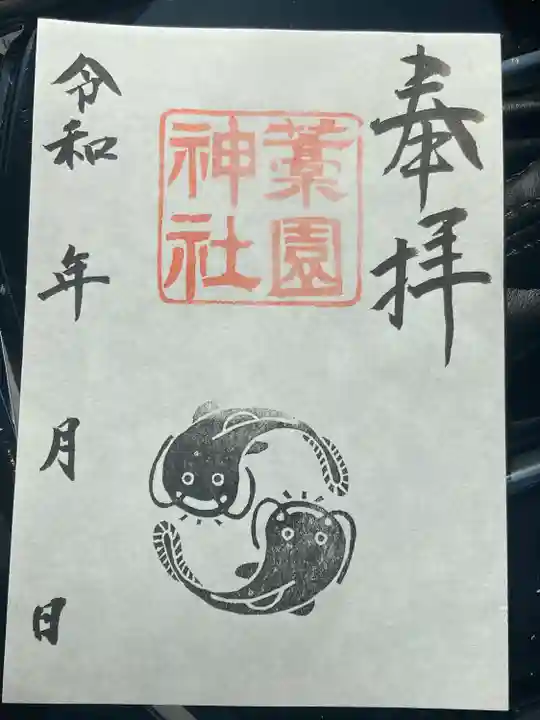 奉拝
藁園
神社
令和 年 月 日